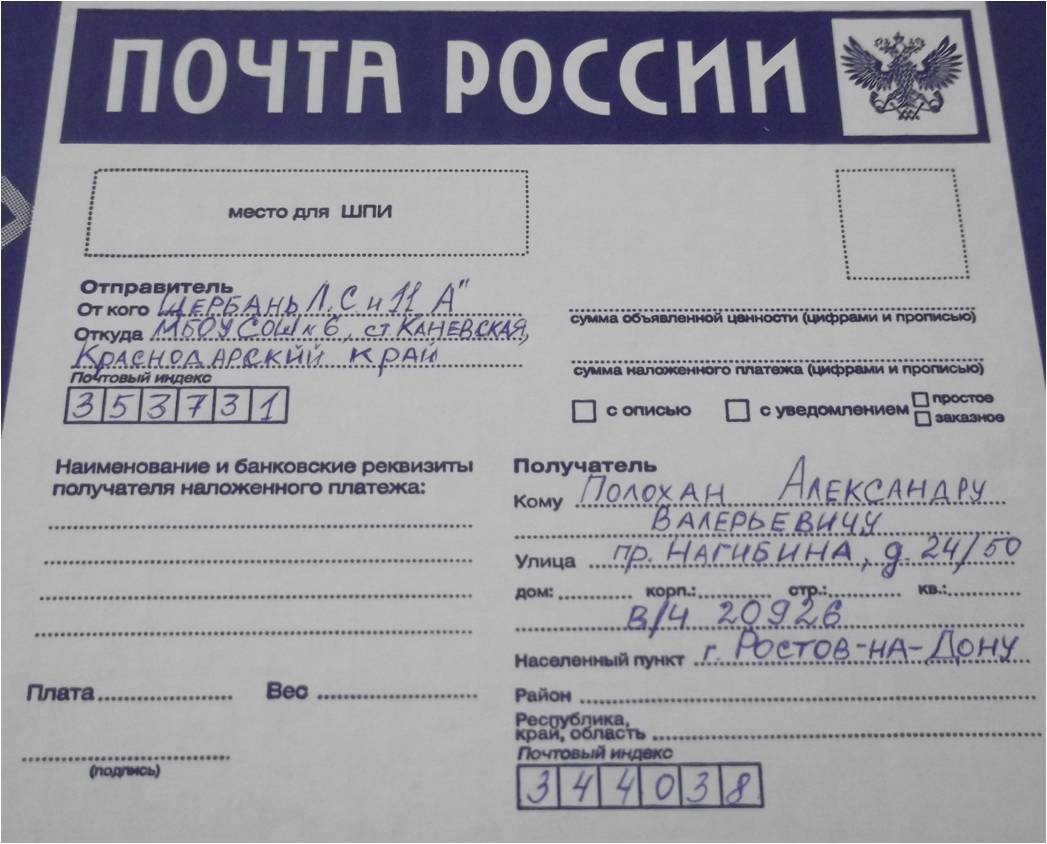 ПОЧТА РОССИИ
место для ШПИ
Отправитель
От кого ЩЕРБАНЬ Л.С и 11 "А"
Откуда МБОУ СОШ № 6, ст. КАНЕВСКАЯ,
КРАСНОДАРСКИЙ КРАЙ
Почтовый индекс
353731
сумма объявленной ценности (цифрами и прописью)
сумма наложенного платежа (цифрами и прописью)
с описью с уведомлением простое
заказное
Наименование и банковские реквизиты
получателя наложенного платежа:
Плата Вес
(подпись)
Получатель
Кому ПОЛОХАН АЛЕКСАНДРУ
ВАЛЕРЬЕВИЧУ
Улица пр. НАГИБИНА, д. 24/50
дом: корп.: стр.: кв.:
В/Ч 20926
Населенный пункт г. РОСТОВ-НА-ДОНУ
Район
Республика,
край, область
Почтовый индекс
344038